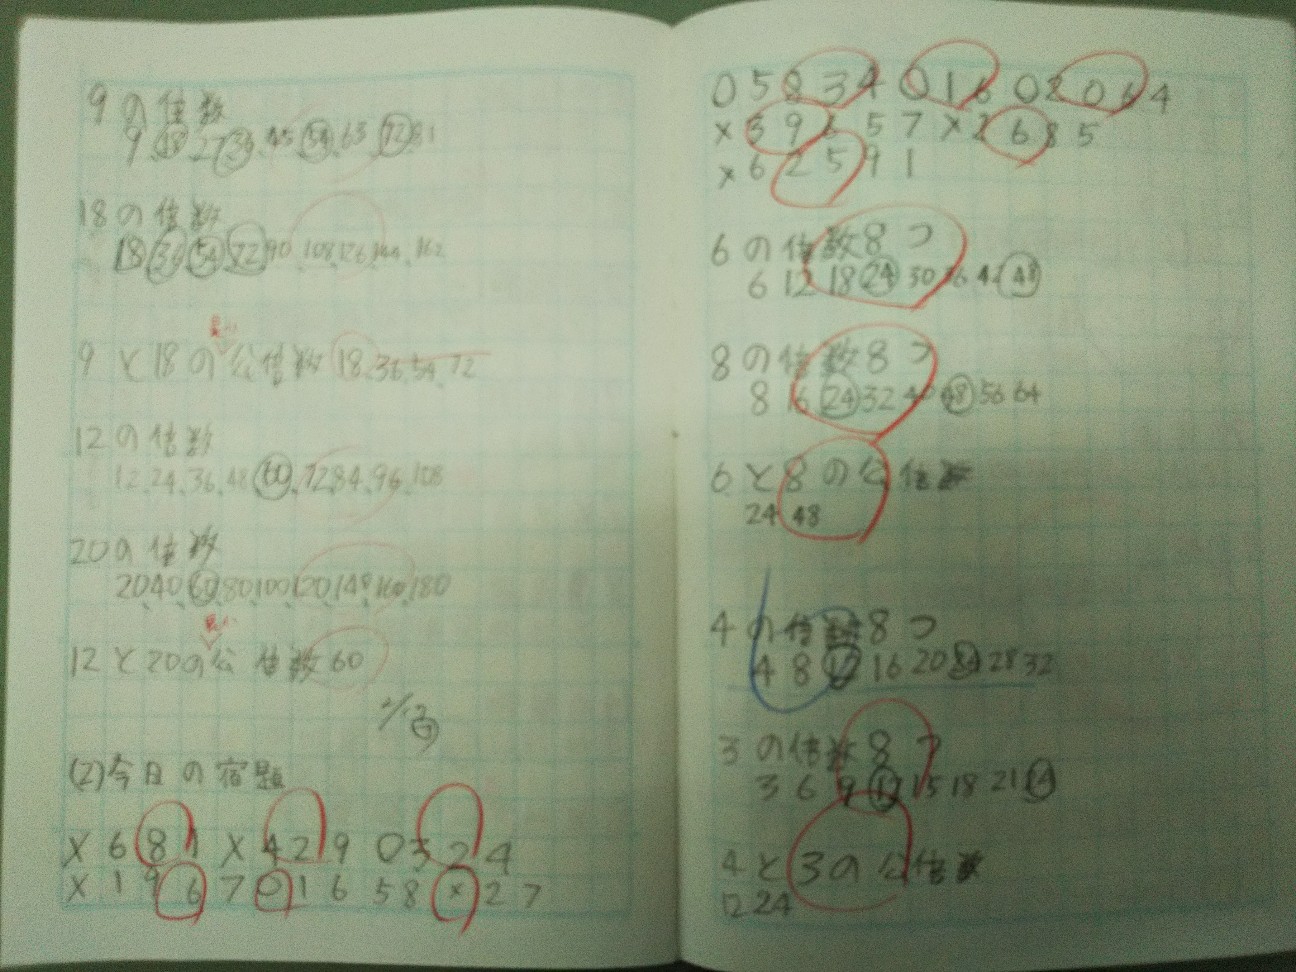 9の倍数
9 18 27 36 45 54 63 72 81
18の倍数
18 36 54 72 90 108 126 144 162
最小
9と18の公倍数 18 36 54 72
12の倍数
12 24 36 48 60 72 84 96 108
20の倍数
20 40 60 80 100 120 140 160 180
最小
12と20の公倍数 60
(2)今日の宿題
×681 ×429 0324
×1967 016 58×27
05834 016 02064
×39657 ×2685
×62591
6の倍数8つ
6 12 18 24 30 36 42 48
8の倍数8つ
8 16 24 32 40 48 56 64
6と8の公倍数
24 48
4の倍数8つ
4 8 12 16 20 24 28 32
3の倍数8つ
3 6 9 12 15 18 21 24
4と3の公倍数
12 24